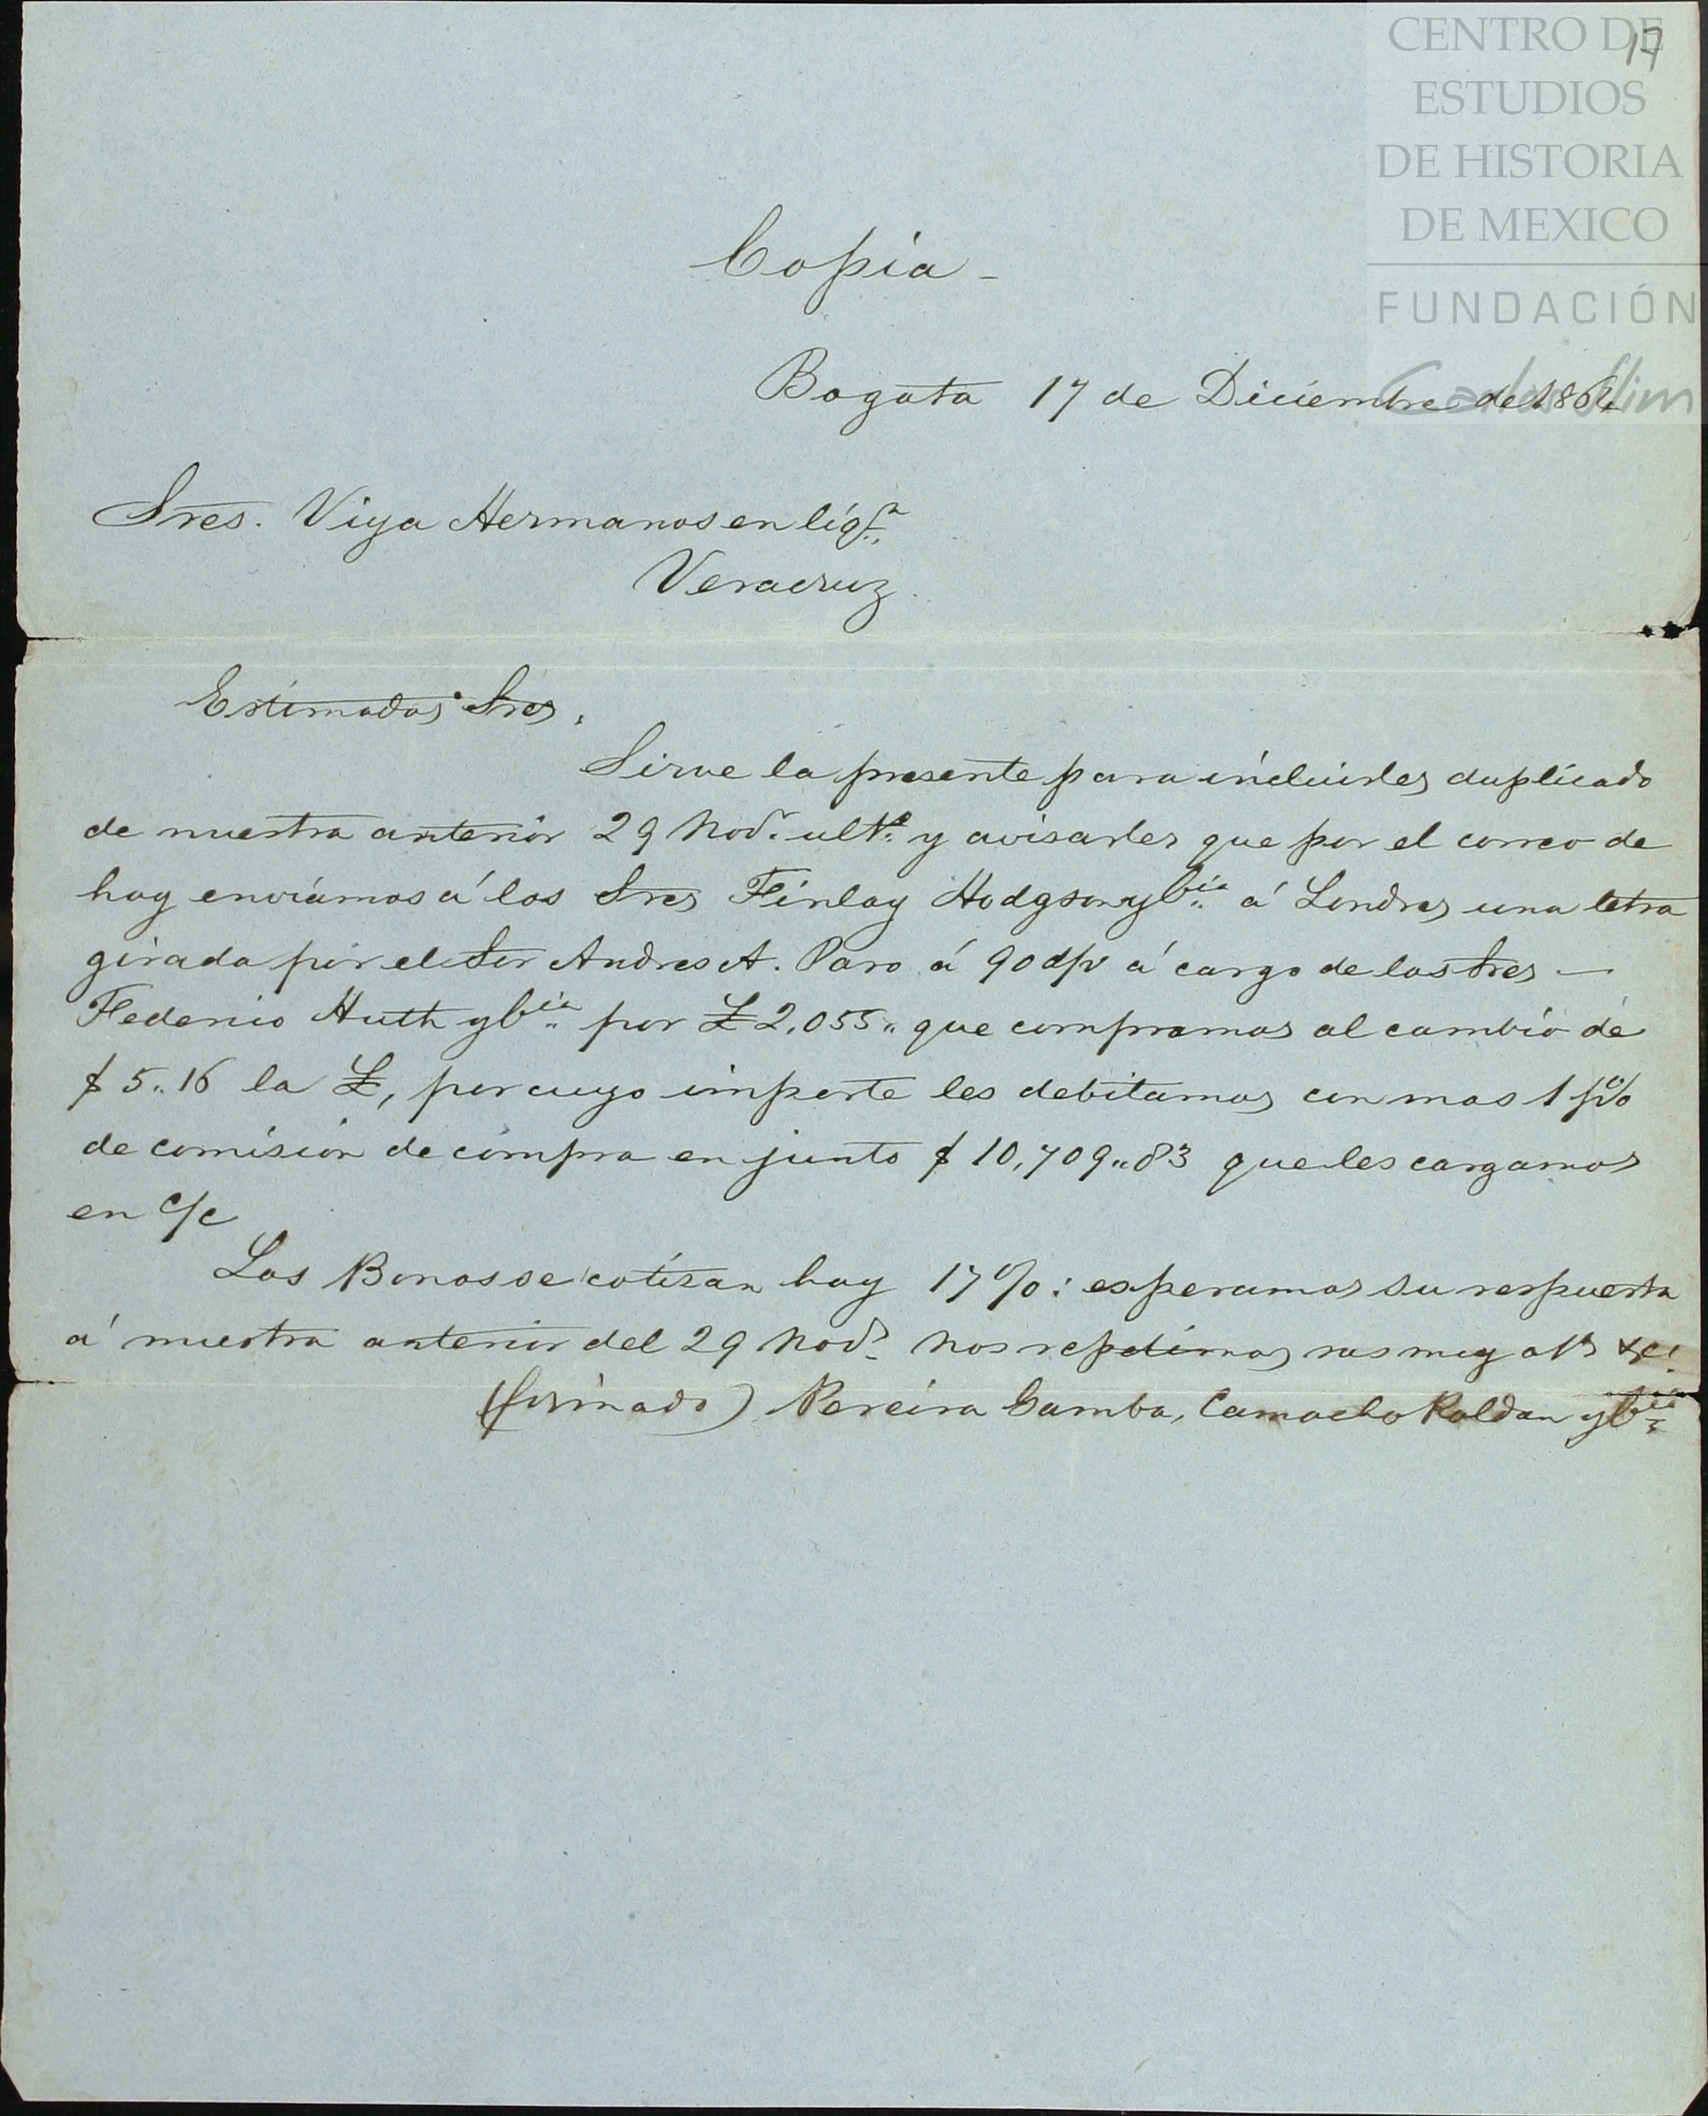 17
CENTRO DE
ESTUDIOS
DE HISTORIA
DE MEXICO
FUNDACIÓN
Carlos Slim
Copia -
Bogota 17 de Diciembre de 1864
Sres. Viya Hermanos en liqn.
Veracruz.
Estimados Sres.
Sirve la presente para incluirles duplicado
de nuestra anterior 29 Nove. ulto. y avisarles que por el correo de
hoy enviamos á los Sres Finlay Hodgson y Cía. á Londres una letra
girada por el Sor Andres A. Paro á 90 d/v á cargo de los Sres —
Federico Huth y Cia.. por £ 2,055,, que compramos al cambio de
$ 5,,16 la £, por cuyo importe les debitamos con mas 1 p%
de comision de compra en junto $ 10,709,,83 que les cargamos
en c/c
Los Bonos se cotizan hoy 17%: esperamos su respuesta
á nuestra anterior del 29 Nove. Nos repetimos sus muy ats &c.
(firmado) Pereira Gamba, Camacho Roldan y Cia.